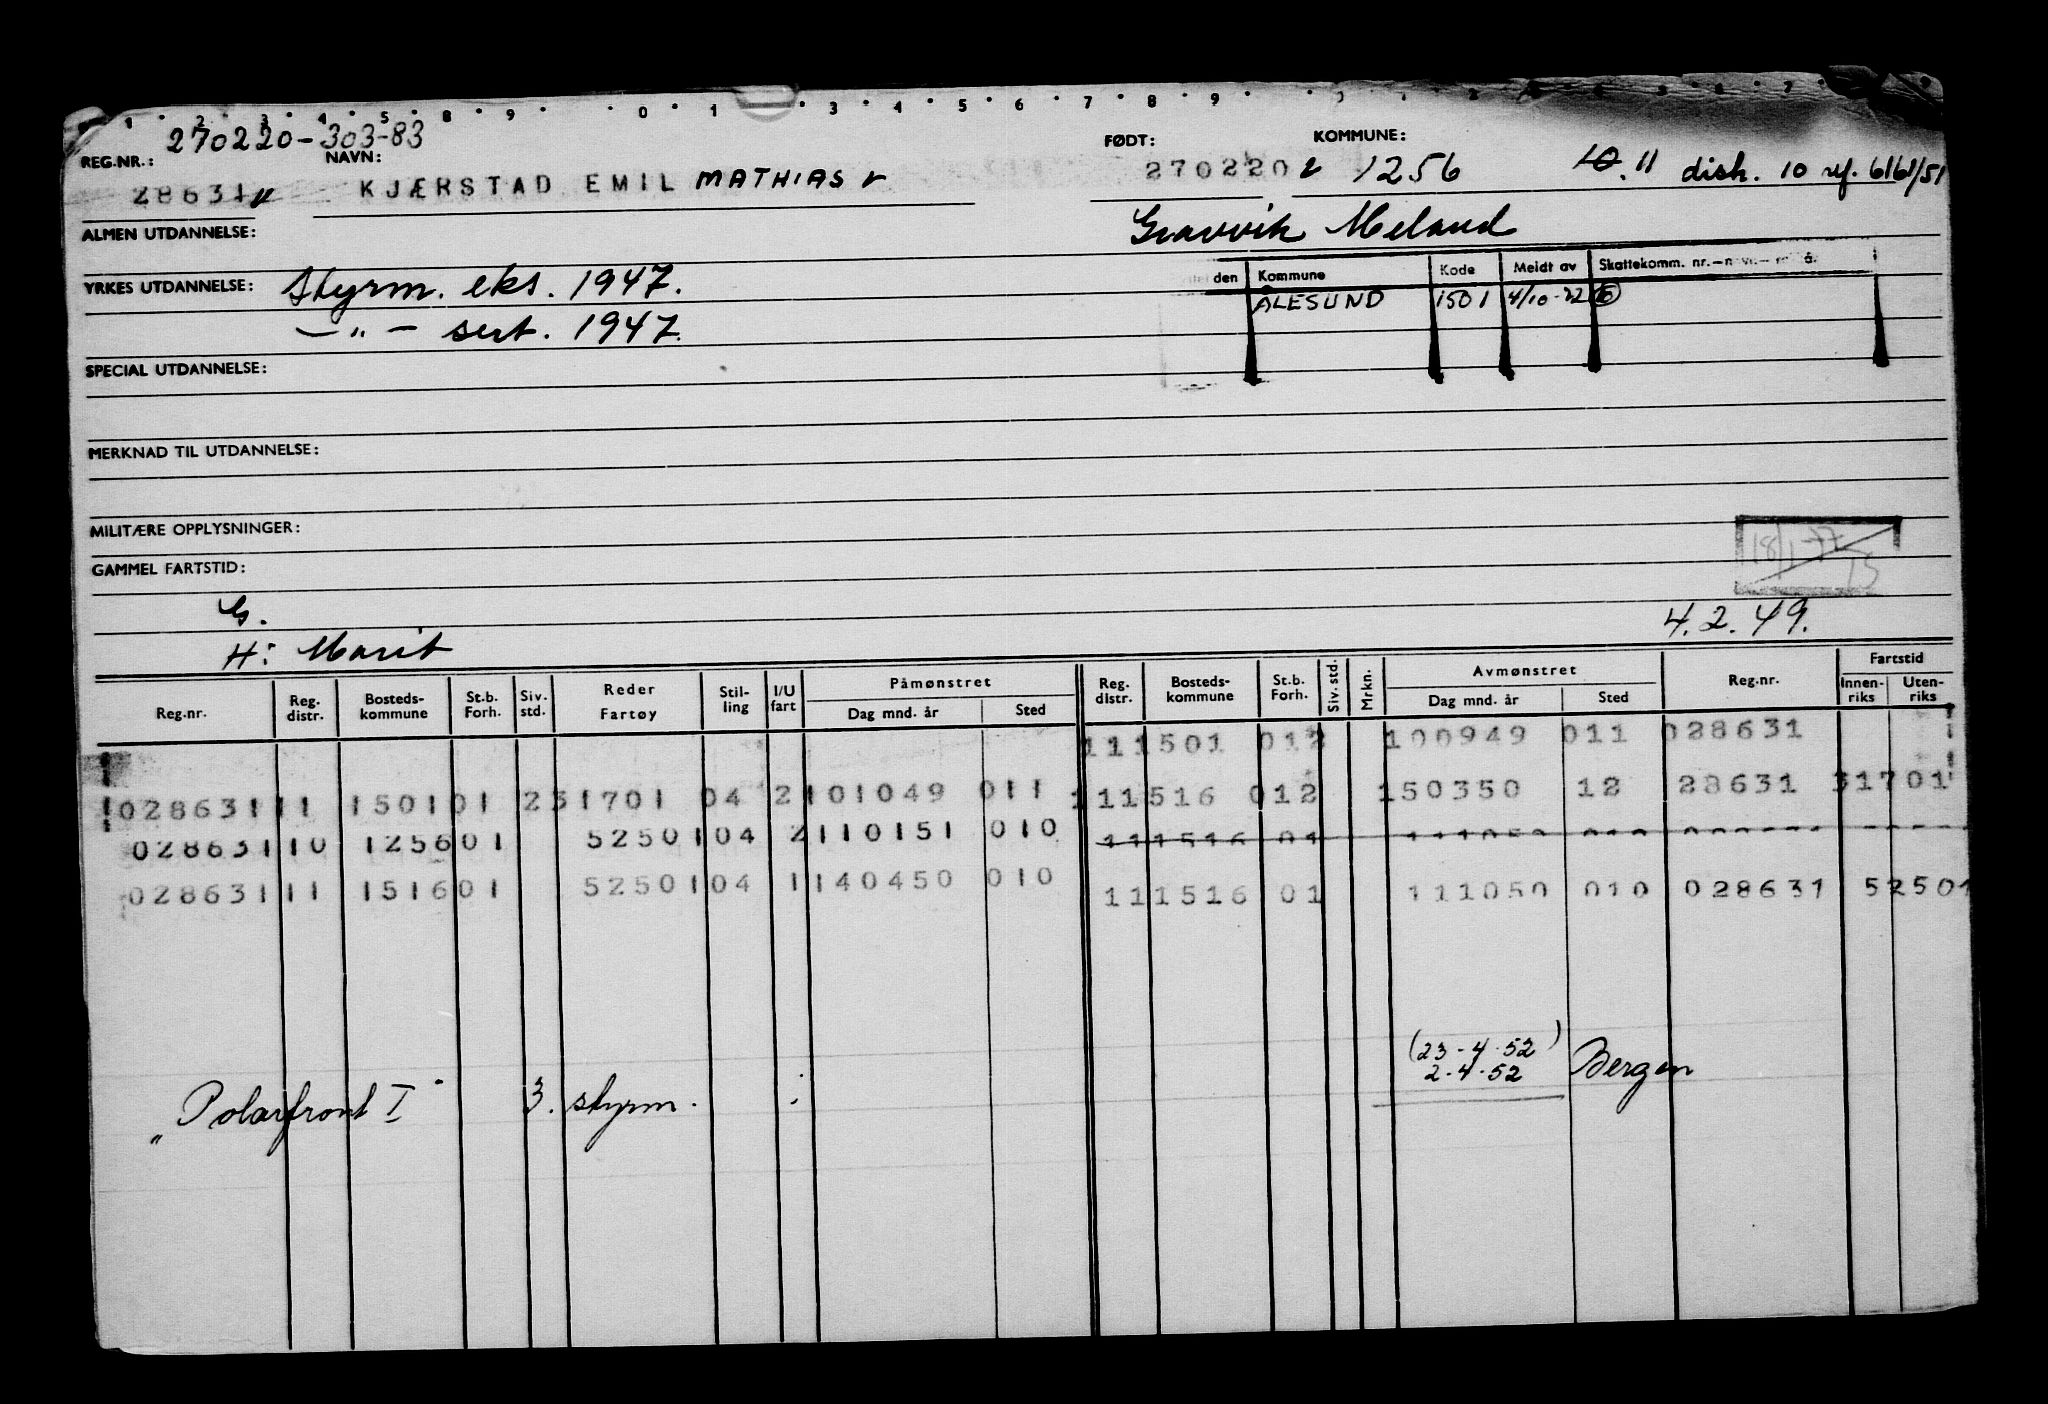 1 2 3 4 5 8 9 0 1 3 4 5 6 7 8 9
270220-303-83
REG.NR.: NAVN: FØDT: KOMMUNE:
28631 KJÆRSTAD EMIL MATHIAS 270220 1256 10. 11 disk. 10 ref. 6161/51
ALMEN UTDANNELSE: Meland
YRKES UTDANNELSE: Styrm. eks. 1947.
den Kommune Kode Meldt av Skattekomm. nr.
ÅLESUND 1501 4/10-72
— " — sert. 1947.
SPECIAL UTDANNELSE:
MERKNAD TIL UTDANNELSE:
MILITÆRE OPPLYSNINGER:
18/1-77
GAMMEL FARTSTID:
G.
H: Marit 4.2.49.
Reg.nr. Reg. distr. Bosteds-kommune St.b. Forh. Siv. std. Reder Fartøy Stil-ling I/U fart Påmønstret Dag mnd. år Sted Reg. distr. Bosteds-kommune St.b. Forh. Siv. std. Mrkn. Avmønstret Dag mnd. år Sted Reg.nr. Fartstid Innen-riks Uten-riks
111501 012 100949 011 028631
028631 11 1501 01 2 31701 04 2 101049 011 111516 012 150350 12 28631 31701
028631 10 1256 01 52501 04 2 110151 010 111516 01
028631 11 1516 01 52501 04 1 140450 010 111516 01 111050 010 028631 52501
(23-4-52)
2-4-52 Bergen
"Polarfront I" 3. styrm.